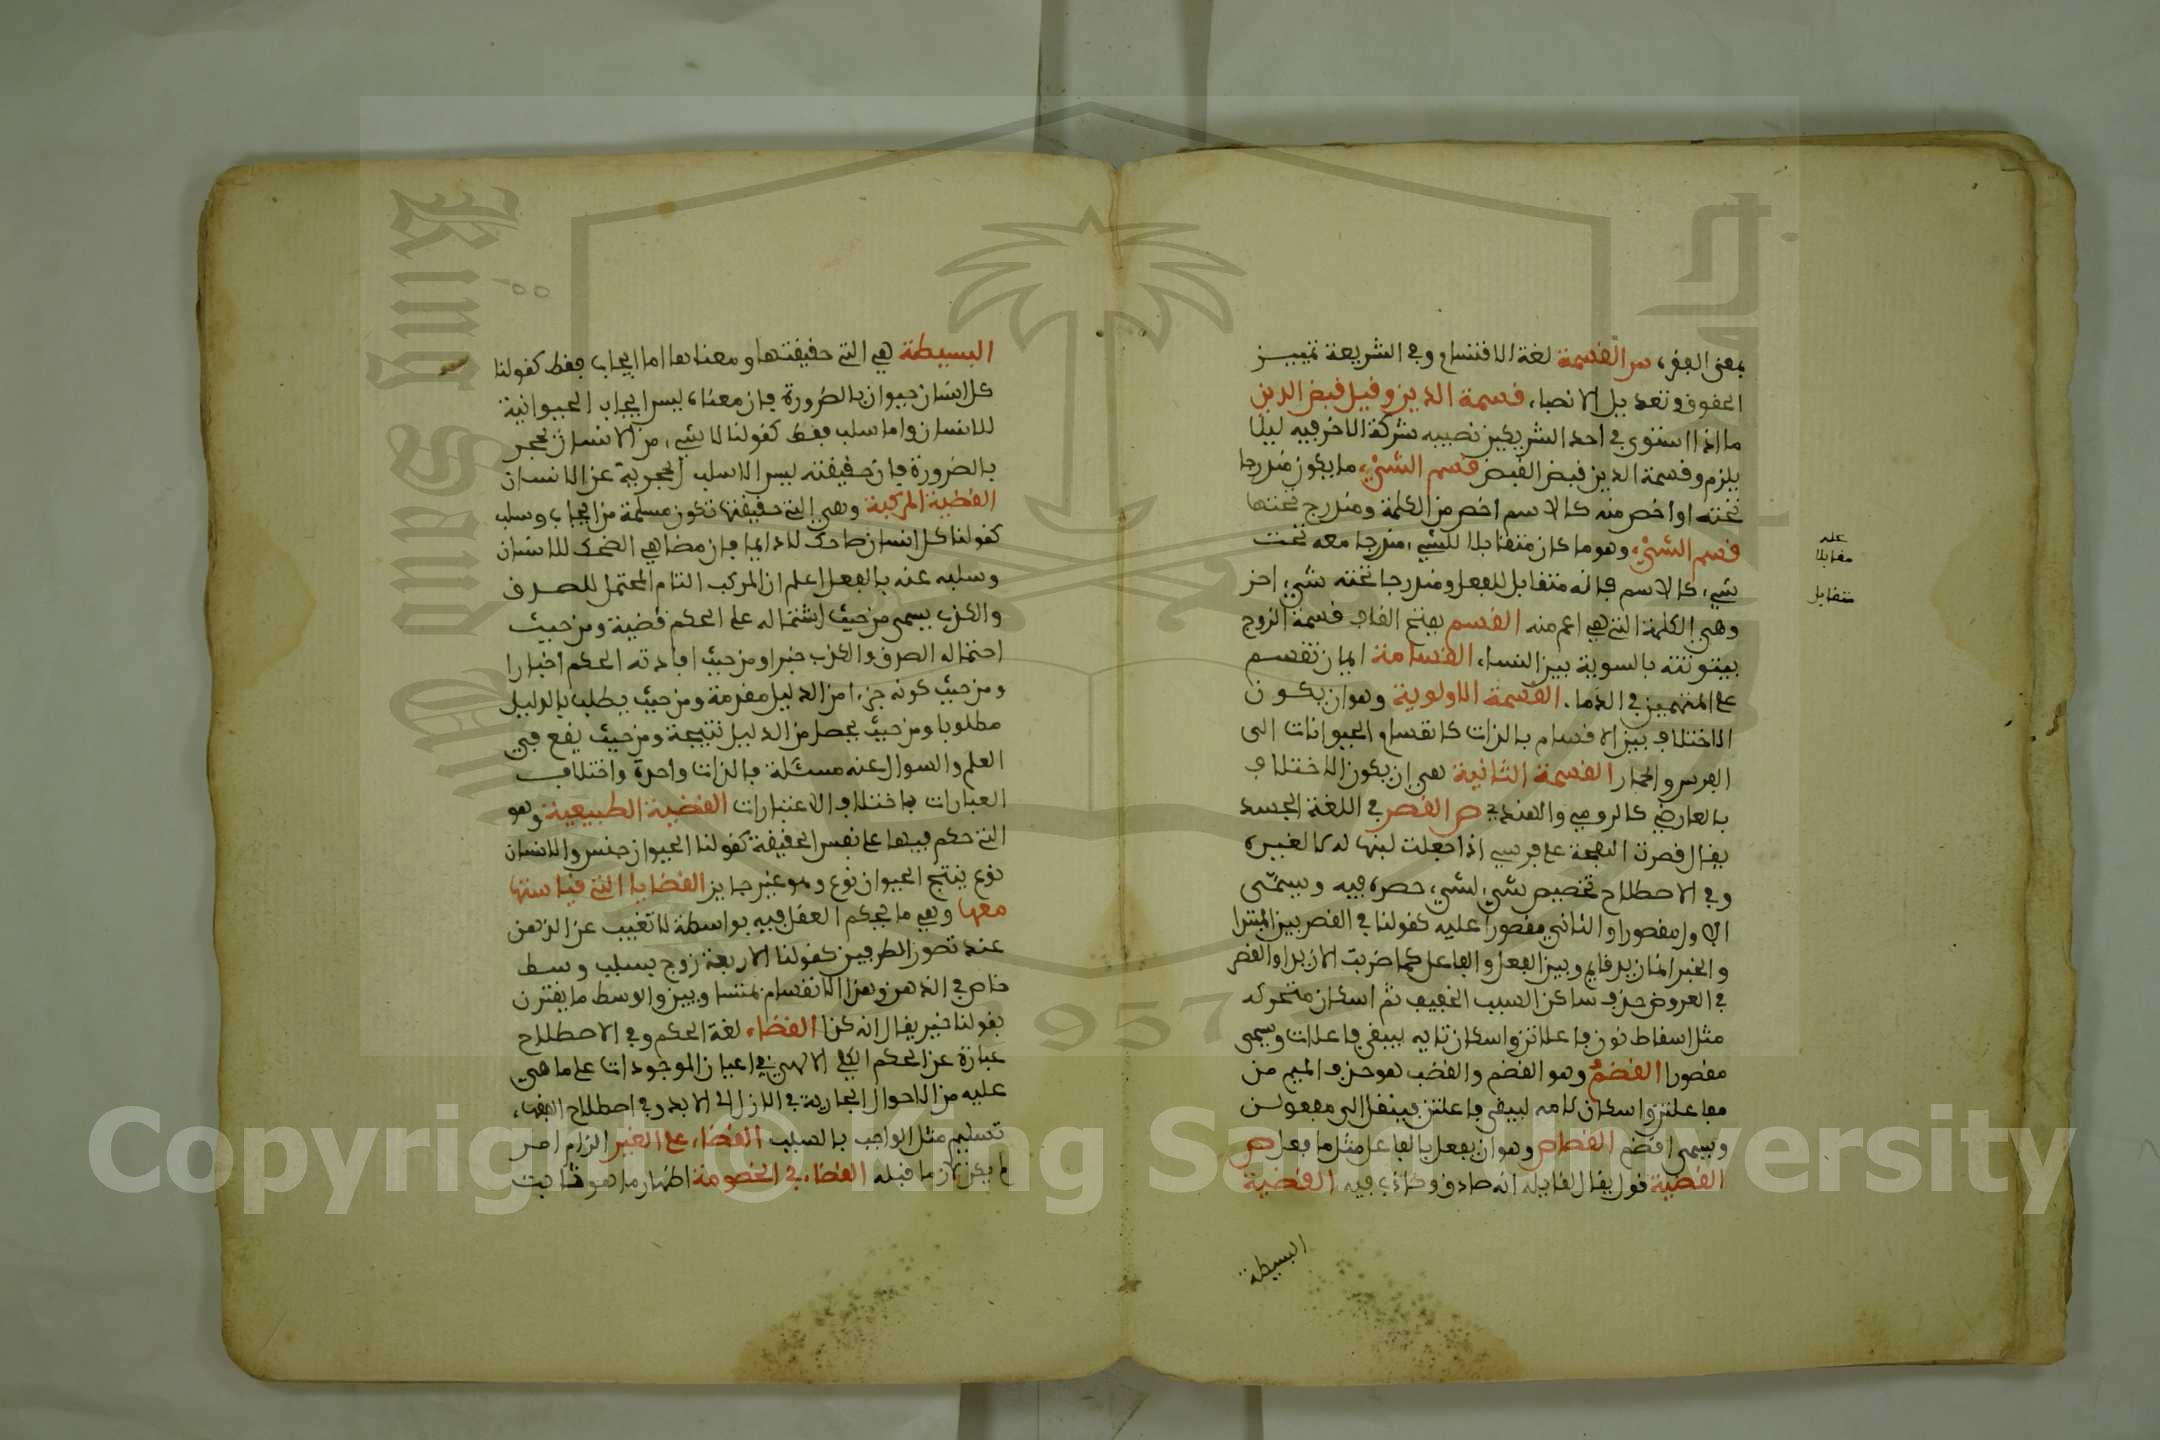 بمعنى الفقراء س القسمة لغة الاقتسام وفي الشريعة تمييز
الحقوق وتعديل الانصباء قسمة الدين وقيل قبض الدين
ما اذا استوفى احد الشريكين نصيبه شركة الاخر فيه ليلا
يلزم وقسمة الدين قبض القبض قسم الشيء ما يكون مندرجا
تحته او اخص منه كالاسم اخص من الكلمة ومندرج تحتها
قسيم الشيء وهو ما كان متقابلا للشيء مندرجا معه تحت
شيء كالاسم فانه متقابل للفعل ومندرجا تحته شيء اخر
وهي الكلمة التي هي اعم منه القسم بفتح القاف قسمة الزوج
بيتوتته بالسوية بين النساء القسامة ايمان تقسم
على المتهمين في الدماء القسمة الاولوية وهو ان يكون
الاختلاف بين الاقسام بالذات كانقسام الحيوانات الى
الفرس والحمار القسمة الثانية هي ان يكون الاختلاف
بالعارضي كالرومي والهندي ص القصر في اللغة الحبس
يقال قصرت اللقحة على فرسي اذا جعلت لبنها له لا لغيره
وفي الاصطلاح تخصيص شيء بشيء حصره فيه ويسمى
الاول مقصورا والثاني مقصورا عليه كقولنا في القصر بين المبتدا
والخبر انما زيد قايم وبين الفعل والفاعل كما ضربت الا زيدا والقصر
في العروض حذف ساكن السبب الخفيف ثم اسكان متحركه
مثل اسقاط نون فاعلاتن واسكان تايه ليبقى فاعلات ويسمى
مقصورا القصم وهو القصم والقضب هو حذف الميم من
مفاعلتن واسكان لامه ليبقى فاعلتن فينقل الى مفعولن
ويسمى اقصم القصاص وهو ان يفعل بالفاعل مثل ما فعل ص
القضية قول يقال لقايله انه صادق او كاذب فيه القضية
البسيطة
عله
مقابلا
متقابل
البسيطة هي التي حقيقتها ومعناها اما ايجاب فقط كقولنا
كل انسان حيوان بالضرورة فان معناه ليس ايجاب الحيوانية
للانسان واما سلب فقط كقولنا لا شيء من الانسان بحجر
بالضرورة فان حقيقته ليس الا سلب الحجرية عن الانسان
القضية المركبة وهي التي حقيقتها تكون ملتئمة من ايجاب وسلب
كقولنا كل انسان ضاحك لا دايما فان معناها هي الضحك للانسان
وسلبه عنه بالفعل اعلم ان المركب التام المحتمل للصدق
والكذب يسمى من حيث اشتماله على الحكم قضية ومن حيث
احتماله الصدق والكذب خبرا ومن حيث افادته الحكم اخبارا
ومن حيث كونه جزءا من الدليل مقدمة ومن حيث يطلب بالدليل
مطلوبا ومن حيث يحصل من الدليل نتيجة ومن حيث يقع في
العلم والسوال عنه مسئلة فالذات واحدة واختلاف
العبارات باختلاف الاعتبارات القضية الطبيعية وهو
التي حكم فيها على نفس الحقيقة كقولنا الحيوان جنس والانسان
نوع ينتج الحيوان نوع وهو غير جايز القضايا التي قياستها
معها وهي ما يحكم العقل فيه بواسطة لا تغيب عن الذهن
عند تصور الطرفين كقولنا الاربعة زوج بسبب وسط
خاص في الذهن وهو الانقسام بمتساويين والوسط ما يقترن
بقولنا حين يقال انه كذا القضاء لغة الحكم وفي الاصطلاح
عبارة عن الحكم الكلي الالهي في اعيان الموجودات على ما هي
عليه من الاحوال الجارية في الازل الى الابد وفي اصطلاح الفقهاء
تسليم مثل الواجب بالسبب القضاء على الغير الزام امر
لم يكن لازما قبله القضاء في الخصومة اظهار ما هو ثابت
Copyright © King Saud University
King Saud University
1957